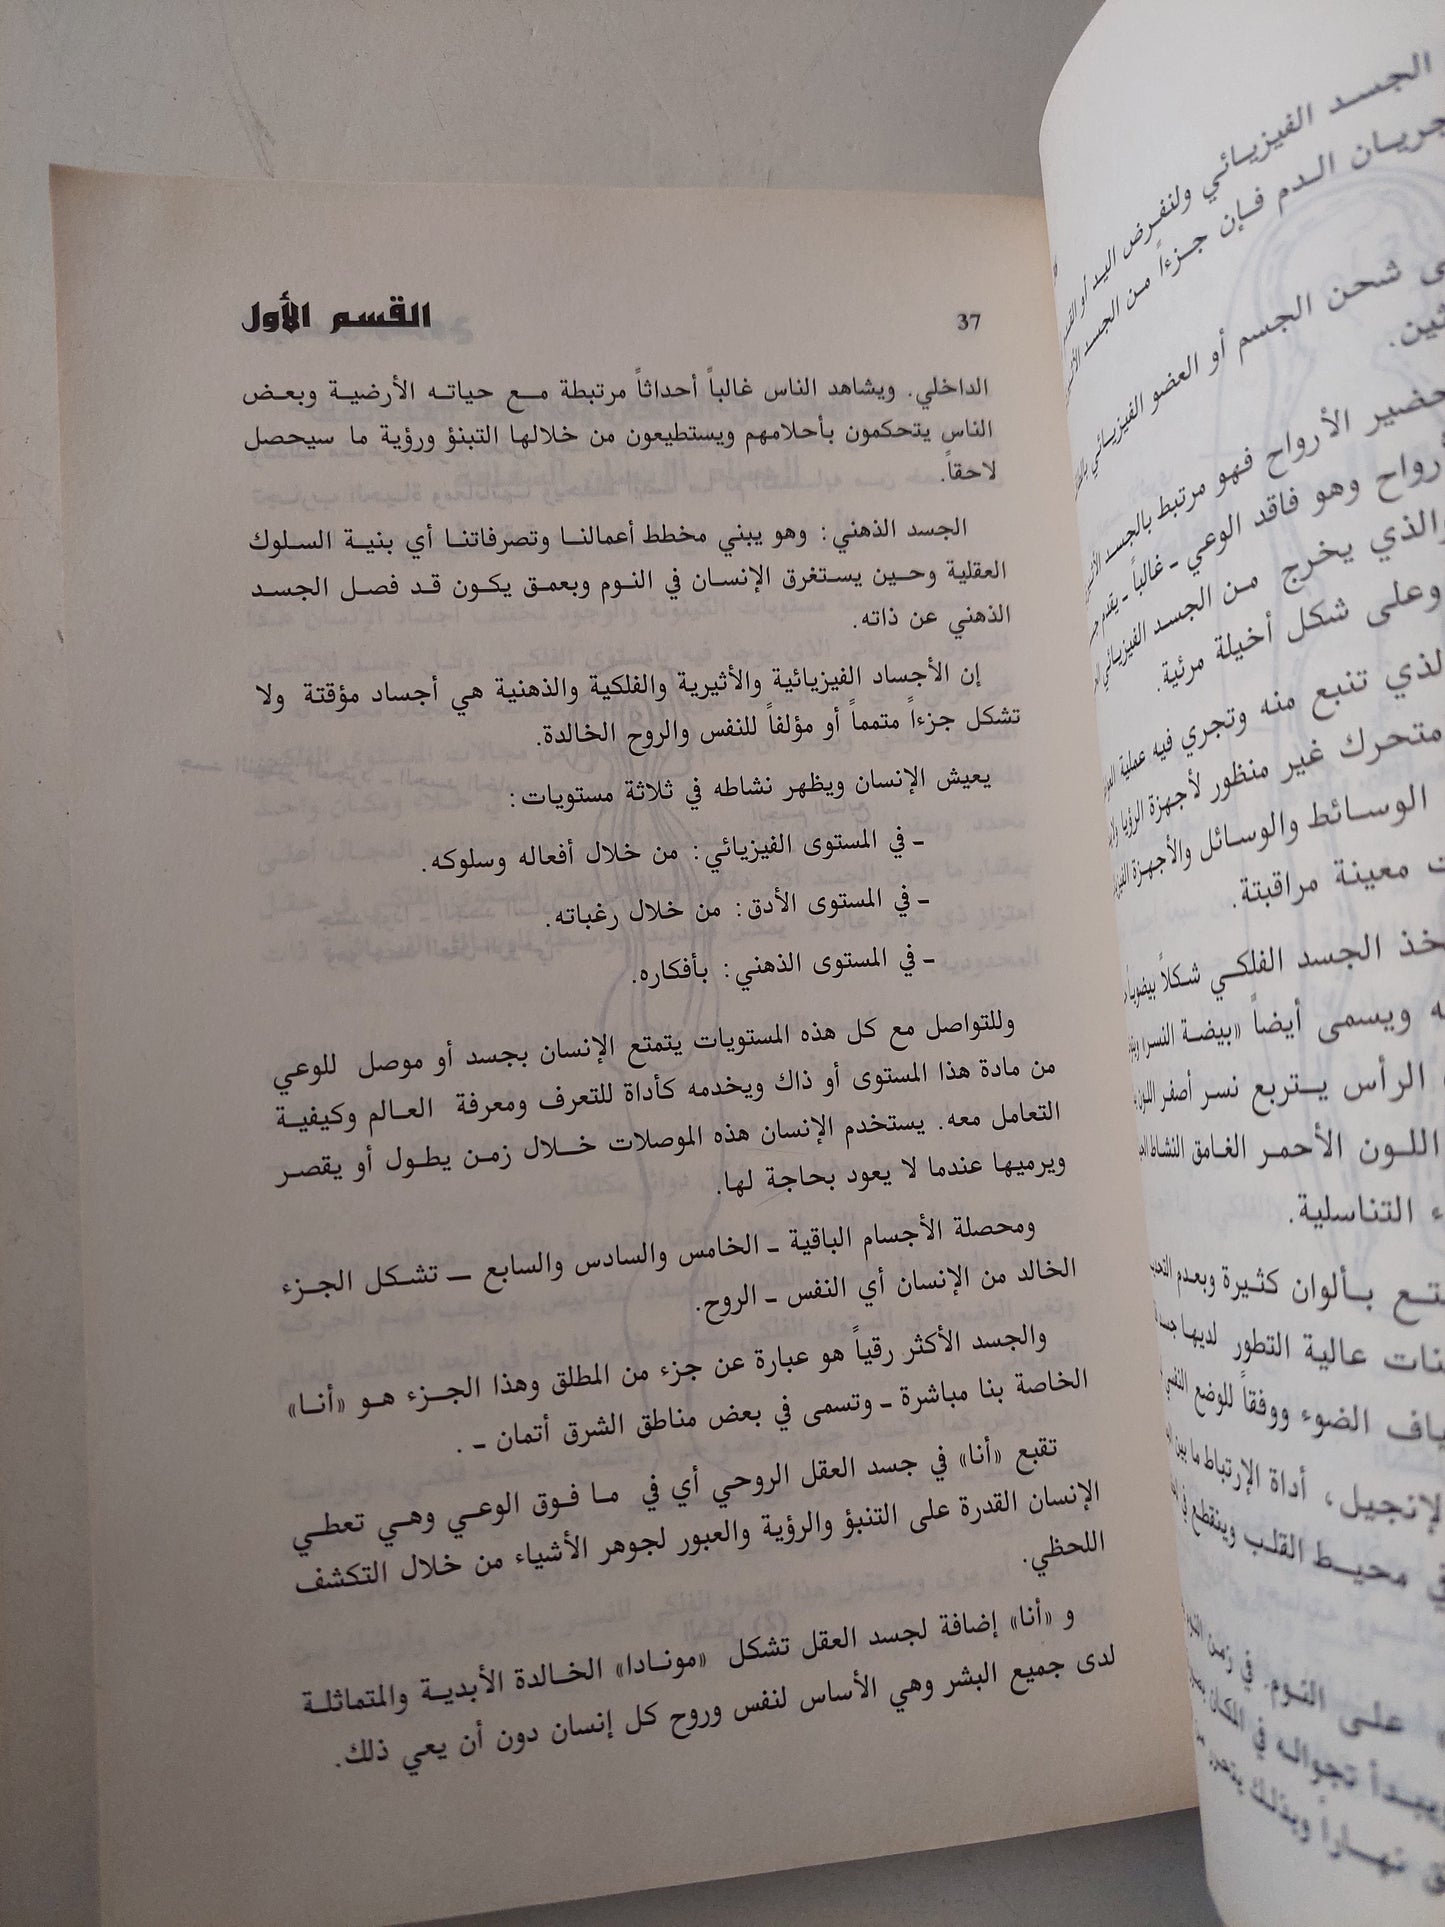 الجسد الفيزيائي ولنفرض اليد أو
جريان الدم فإن جزءاً من الجسد
شحن الجسم أو العضو الفيزيائي
حضير الأرواح فهو مرتبط بالجسد
رواح وهو فاقد الوعي - غالباً - يقدم
والذي يخرج من الجسد الفيزيائي
وعلى شكل أخيلة مرئية.
لذي تنبع منه وتجري فيه عملية
متحرك غير منظور لأجهزة الرؤيا
الوسائط والوسائل والأجهزة
ت معينة مراقبتة.
خذ الجسد الفلكي شكلاً بيضوياً
ه ويسمى أيضاً «بيضة النسر»
الرأس يتربع نسر أصفر اللون
اللون الأحمر الغامق النشاط
ء التناسلية.
تع بألوان كثيرة وبعدم
نات عالية التطور لديها
ياف الضوء ووفقاً للوضع
لإنجيل، أداة الإرتباط ما بين
في محيط القلب وينقطع في
على النوم. في زمن
ويبدأ تجواله في المكان
نهاراً وبذلك
37
القسم الأول
الداخلي. ويشاهد الناس غالباً أحداثاً مرتبطة مع حياته الأرضية وبعض
الناس يتحكمون بأحلامهم ويستطيعون من خلالها التبنؤ ورؤية ما سيحصل
لاحقاً.
الجسد الذهني: وهو يبني مخطط أعمالنا وتصرفاتنا أي بنية السلوك
العقلية وحين يستغرق الإنسان في النوم وبعمق يكون قد فصل الجسد
الذهني عن ذاته.
إن الأجساد الفيزيائية والأثيرية والفلكية والذهنية هي أجساد مؤقتة ولا
تشكل جزءاً متمماً أو مؤلفاً للنفس والروح الخالدة.
يعيش الإنسان ويظهر نشاطه في ثلاثة مستويات:
- في المستوى الفيزيائي: من خلال أفعاله وسلوكه.
- في المستوى الأدق: من خلال رغباته.
- في المستوى الذهني: بأفكاره.
وللتواصل مع كل هذه المستويات يتمتع الإنسان بجسد أو موصل للوعي
من مادة هذا المستوى أو ذاك ويخدمه كأداة للتعرف ومعرفة العالم وكيفية
التعامل معه. يستخدم الإنسان هذه الموصلات خلال زمن يطول أو يقصر
ويرميها عندما لا يعود بحاجة لها.
ومحصلة الأجسام الباقية - الخامس والسادس والسابع - تشكل الجزء
الخالد من الإنسان أي النفس - الروح.
والجسد الأكثر رقياً هو عبارة عن جزء من المطلق وهذا الجزء هو «أنا»
الخاصة بنا مباشرة - وتسمى في بعض مناطق الشرق أتمان - .
تقبع «أنا» في جسد العقل الروحي أي في ما فوق الوعي وهي تعطي
الإنسان القدرة على التنبؤ والرؤية والعبور لجوهر الأشياء من خلال التكشف
اللحظي.
و «أنا» إضافة لجسد العقل تشكل «مونادا» الخالدة الأبدية والمتماثلة
لدى جميع البشر وهي الأساس لنفس وروح كل إنسان دون أن يعي ذلك.